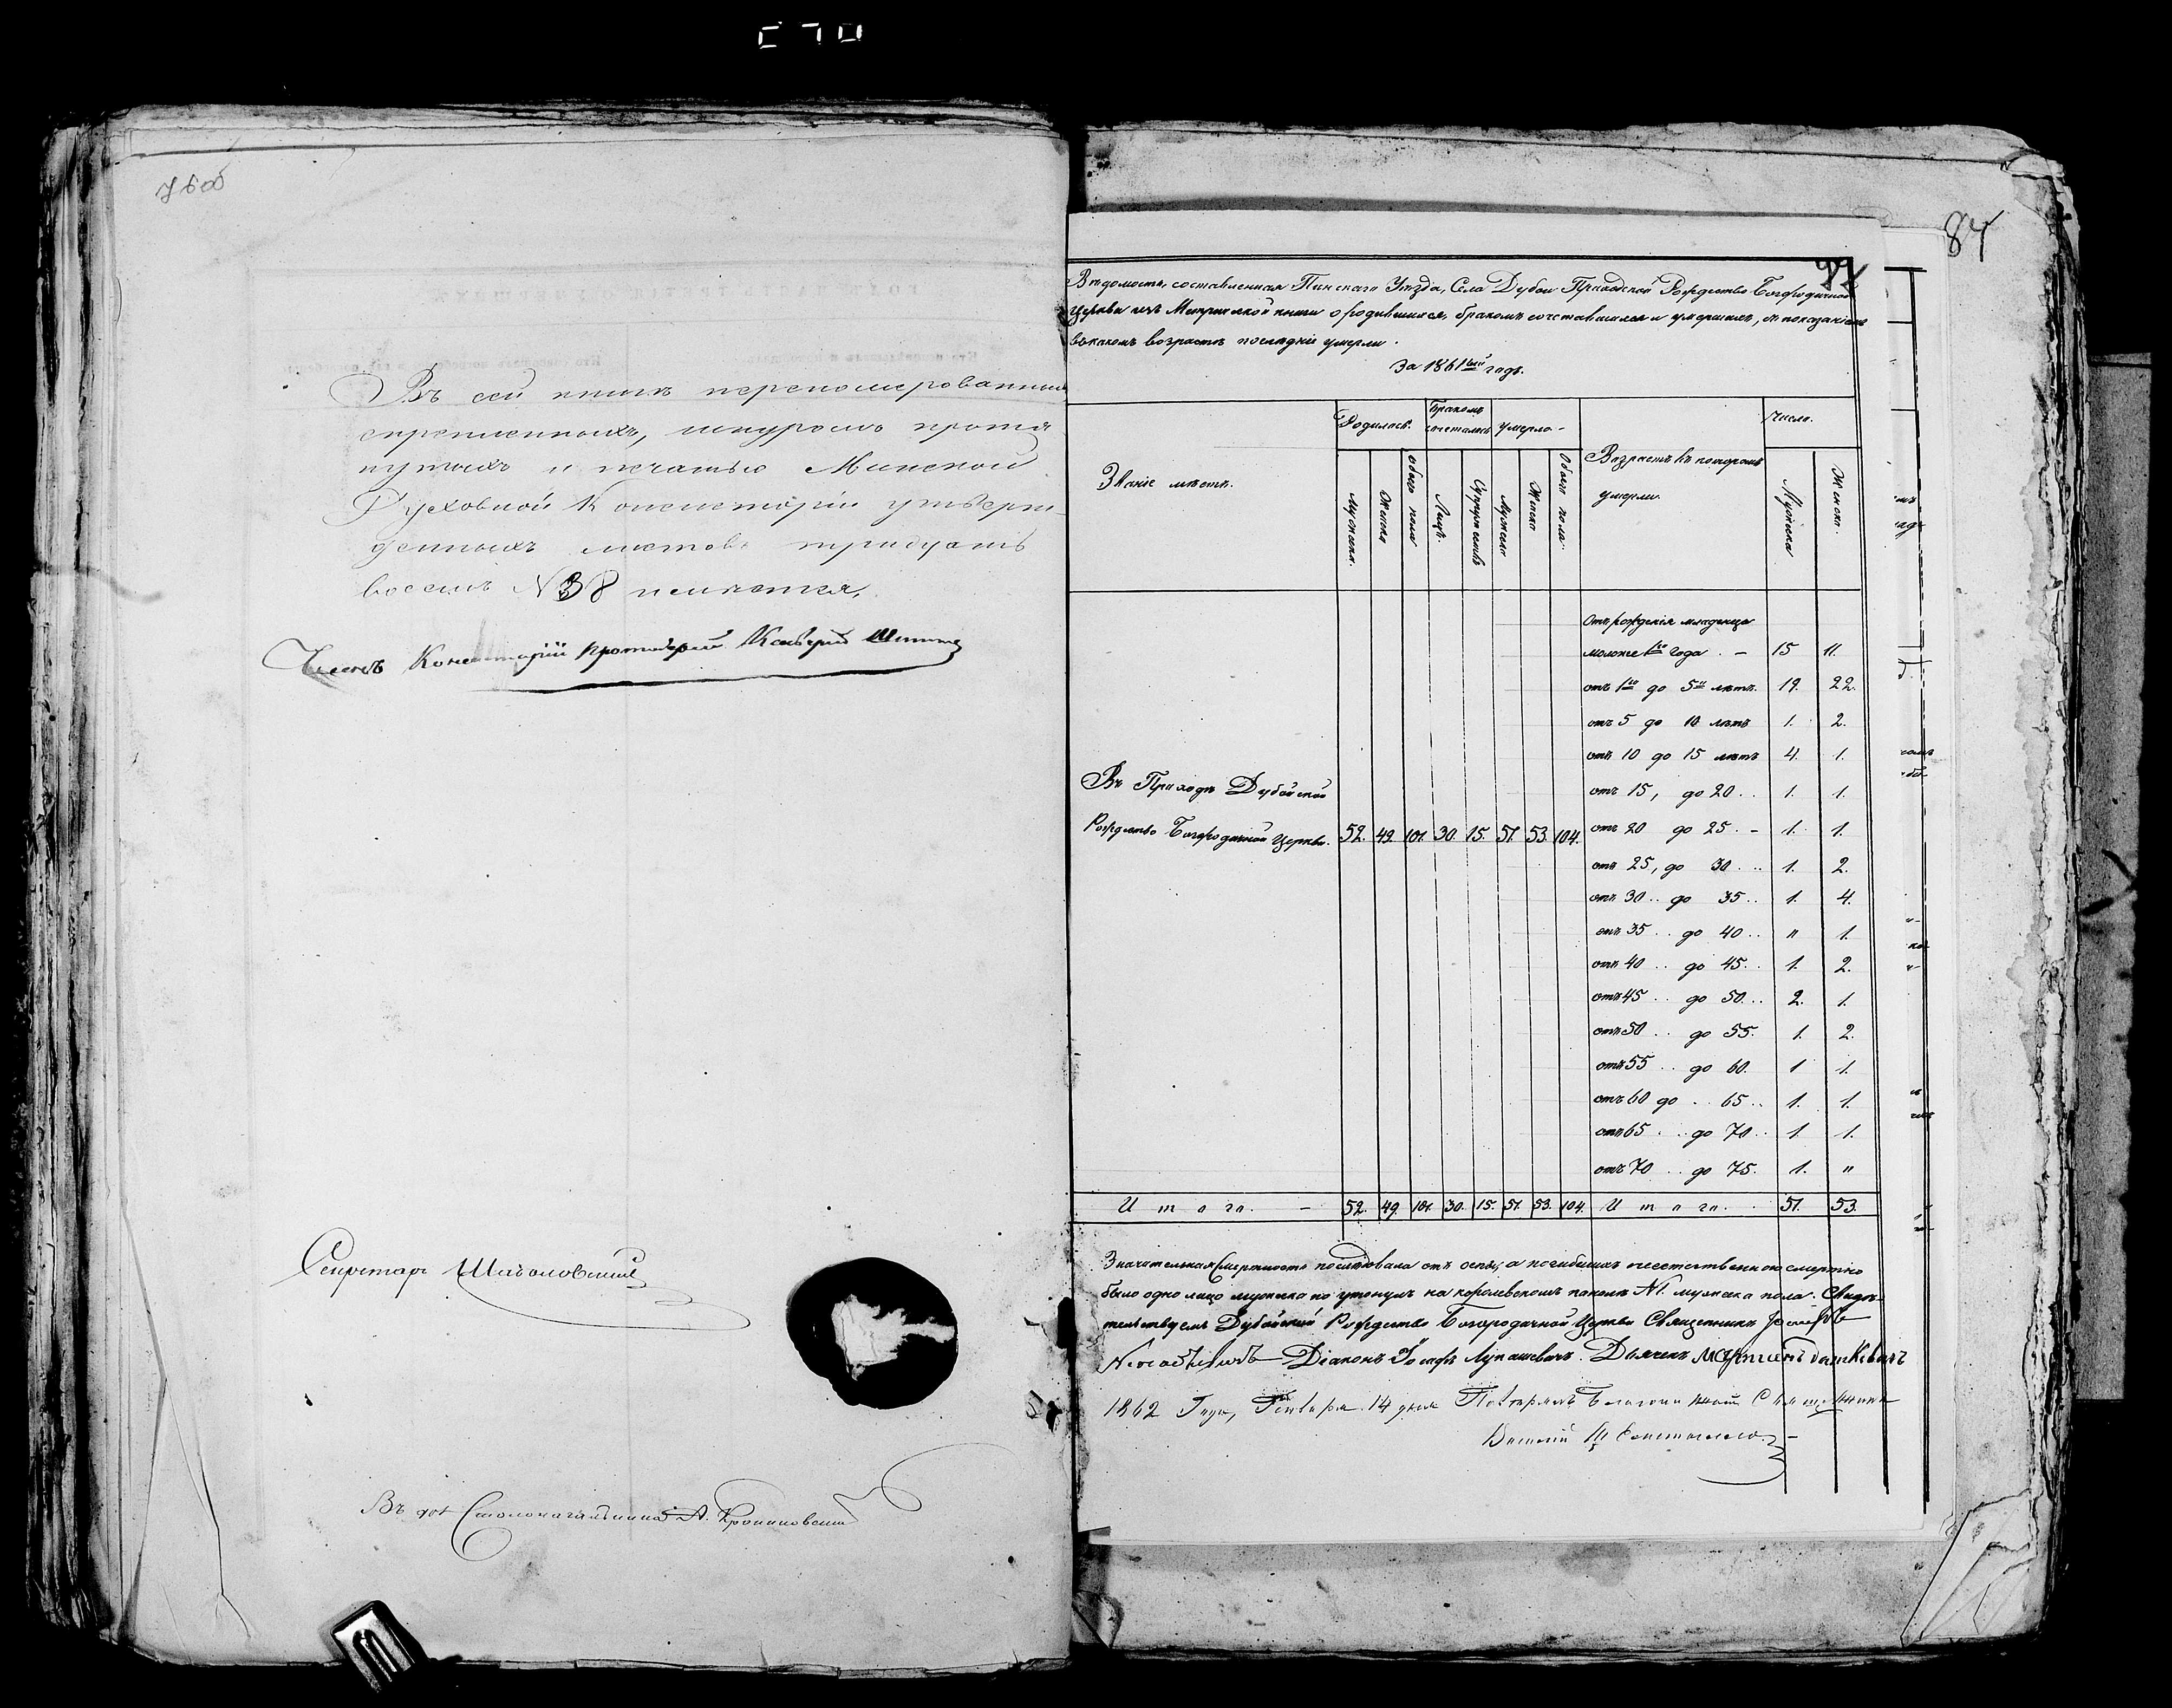 Въ сей книгѣ перенумерованныхъ
скрепленныхъ, шнуромъ протя
нутыхъ и печатью Минской
Духовной Консисторіи утверж-
денныхъ листовъ тридцать
восемь N 38 исчислено
Членъ Консисторіи протоіерей
Секретарь
Въ дол Столоначальника А.
84
Вѣдомость, составленная Пинскаго Уѣзда, Села Дубои Приходской Рождество-Богородичной
Церкви изъ Метрической книги о родившихся, бракомъ сочетавшихся и умершихъ, съ показаніемъ
въ какомъ возрастѣ послѣдніе умерли.
За 1861ый годъ.
Званіе мѣстъ.
Родилось. Бракомъ сочеталось Умерло. Возрастъ въ которомъ умерли. Число.
Мужеска. Женска Обоего пола Лицъ. Супружествъ Мужеска Женска Обоего пола. Мужеска Женска.
Отъ рожденія младенца
моложе 1го года . – 15 11.
отъ 1го до 5и лѣтъ. 19. 22.
отъ 5 до 10 лѣтъ 1. 2.
отъ 10 до 15 лѣтъ 4. 1.
Въ Приходѣ Дубойской
отъ 15, до 20 .. 1. 1.
Рождество Богородичной Церкви. 52. 49. 101. 30. 15. 51. 53. 104. отъ 20 до 25. – 1. 1.
отъ 25, до 30 .. 1. 2.
отъ 30 .. до 35 .. 1. 4.
отъ 35 .. до 40 .. " 1.
отъ 40 .. до 45 .. 1. 2.
отъ 45 .. до 50 .. 2. 1.
отъ 50 .. до 55. 1. 2.
отъ 55 .. до 60. 1 1.
отъ 60 до .. 65 .. 1. 1.
отъ 65 .. до 70 .. 1 1.
отъ 70 .. до 75. 1. "
Итого. – 52. 49. 101. 30. 15. 51. 53. 104. Итого. 51. 53.
Значительная смертность послѣдовала отъ оспы, а погибшихъ неестественною смертію
было одно лицо мужеска по утонулъ на королевскомъ каналѣ N1. мужеска пола. Свидѣ-
тельствуемъ Дубойской Рождество Богородичной Церкви Священникъ
Діаконъ Іосифъ Лукашевичъ. Дьячекъ
1862 Года, Генваря 14 дня Повѣрялъ Благочинный Священникъ
Василій